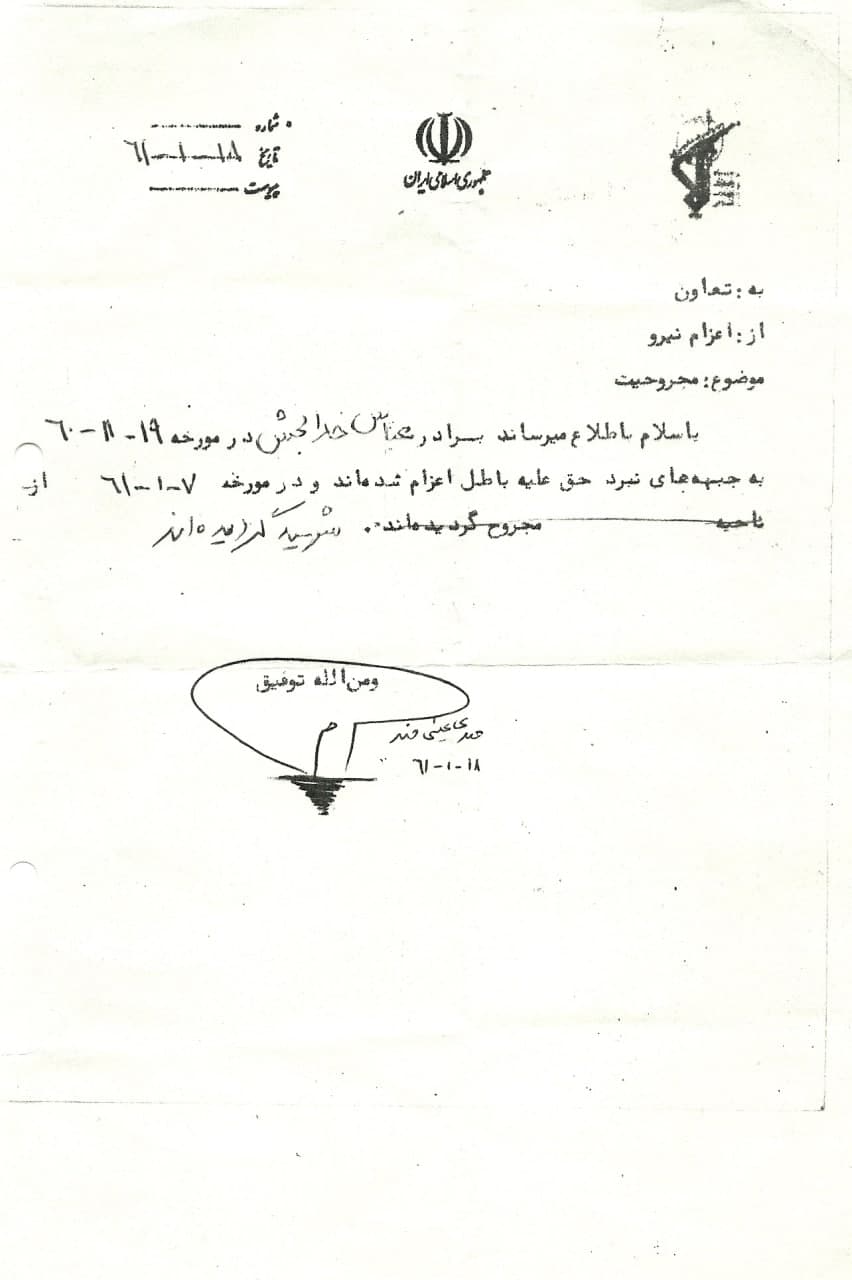 شماره
تاریخ ۱۸-۱-۶۱
پیوست
جمهوری اسلامی ایران
به : تعاون
از : اعزام نیرو
موضوع : مجروحیت
باسلام باطلاع میرساند برادر عباس خدابخش در مورخه ۱۹-۱۱-۶۰
به جبهه‌های نبرد حق علیه باطل اعزام شده‌اند و در مورخه ۷-۱-۶۱ از
ناحیه مجروح گردیده‌اند. شهید گردیده‌اند
ومن‌الله توفیق
۱۸-۱-۶۱